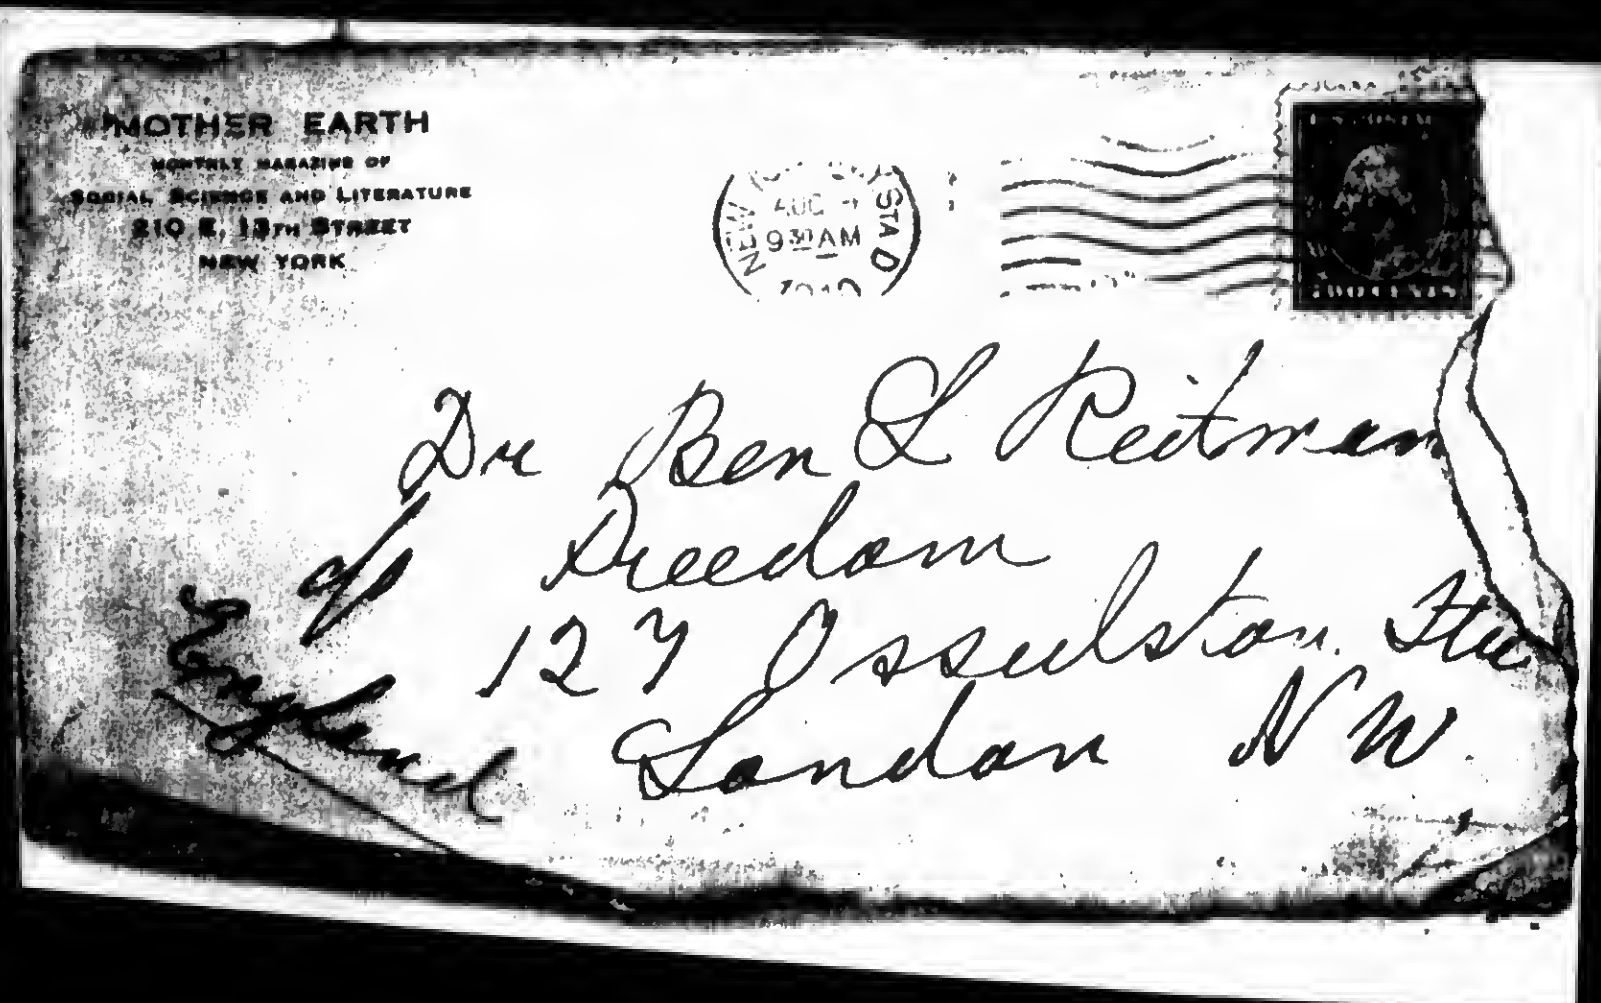 MOTHER EARTH
MONTHLY MAGAZINE OF
SOCIAL SCIENCE AND LITERATURE
210 E. 13TH STREET
NEW YORK
NEW YORK STA D
AUG
9 30 AM
1910
Dr Ben L Reitman
c/o Freedom
127 Ossulston
London N W.
England